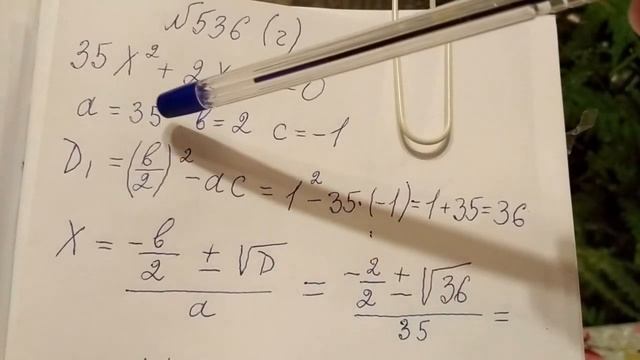 №536 (г)
35x² + 2x 0
a = 35 в = 2 c = -1
D₁ = (в/2)² - ac = 1² - 35·(-1) = 1 + 35 = 36
X = (-в/2 ± √D)/a = (-2/2 ± √36)/35 =